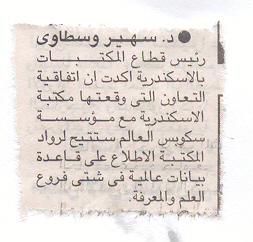 ● د. سهير وسطاوى
رئيس قطاع المكتبات
بالاسكندرية أكدت ان اتفاقية
التعاون التى وقعتها مكتبة
الاسكندرية مع مؤسسة
سكوبس العالم ستتيح لرواد
المكتبة الاطلاع على قاعدة
بيانات عالمية فى شتى فروع
العلم والمعرفة.